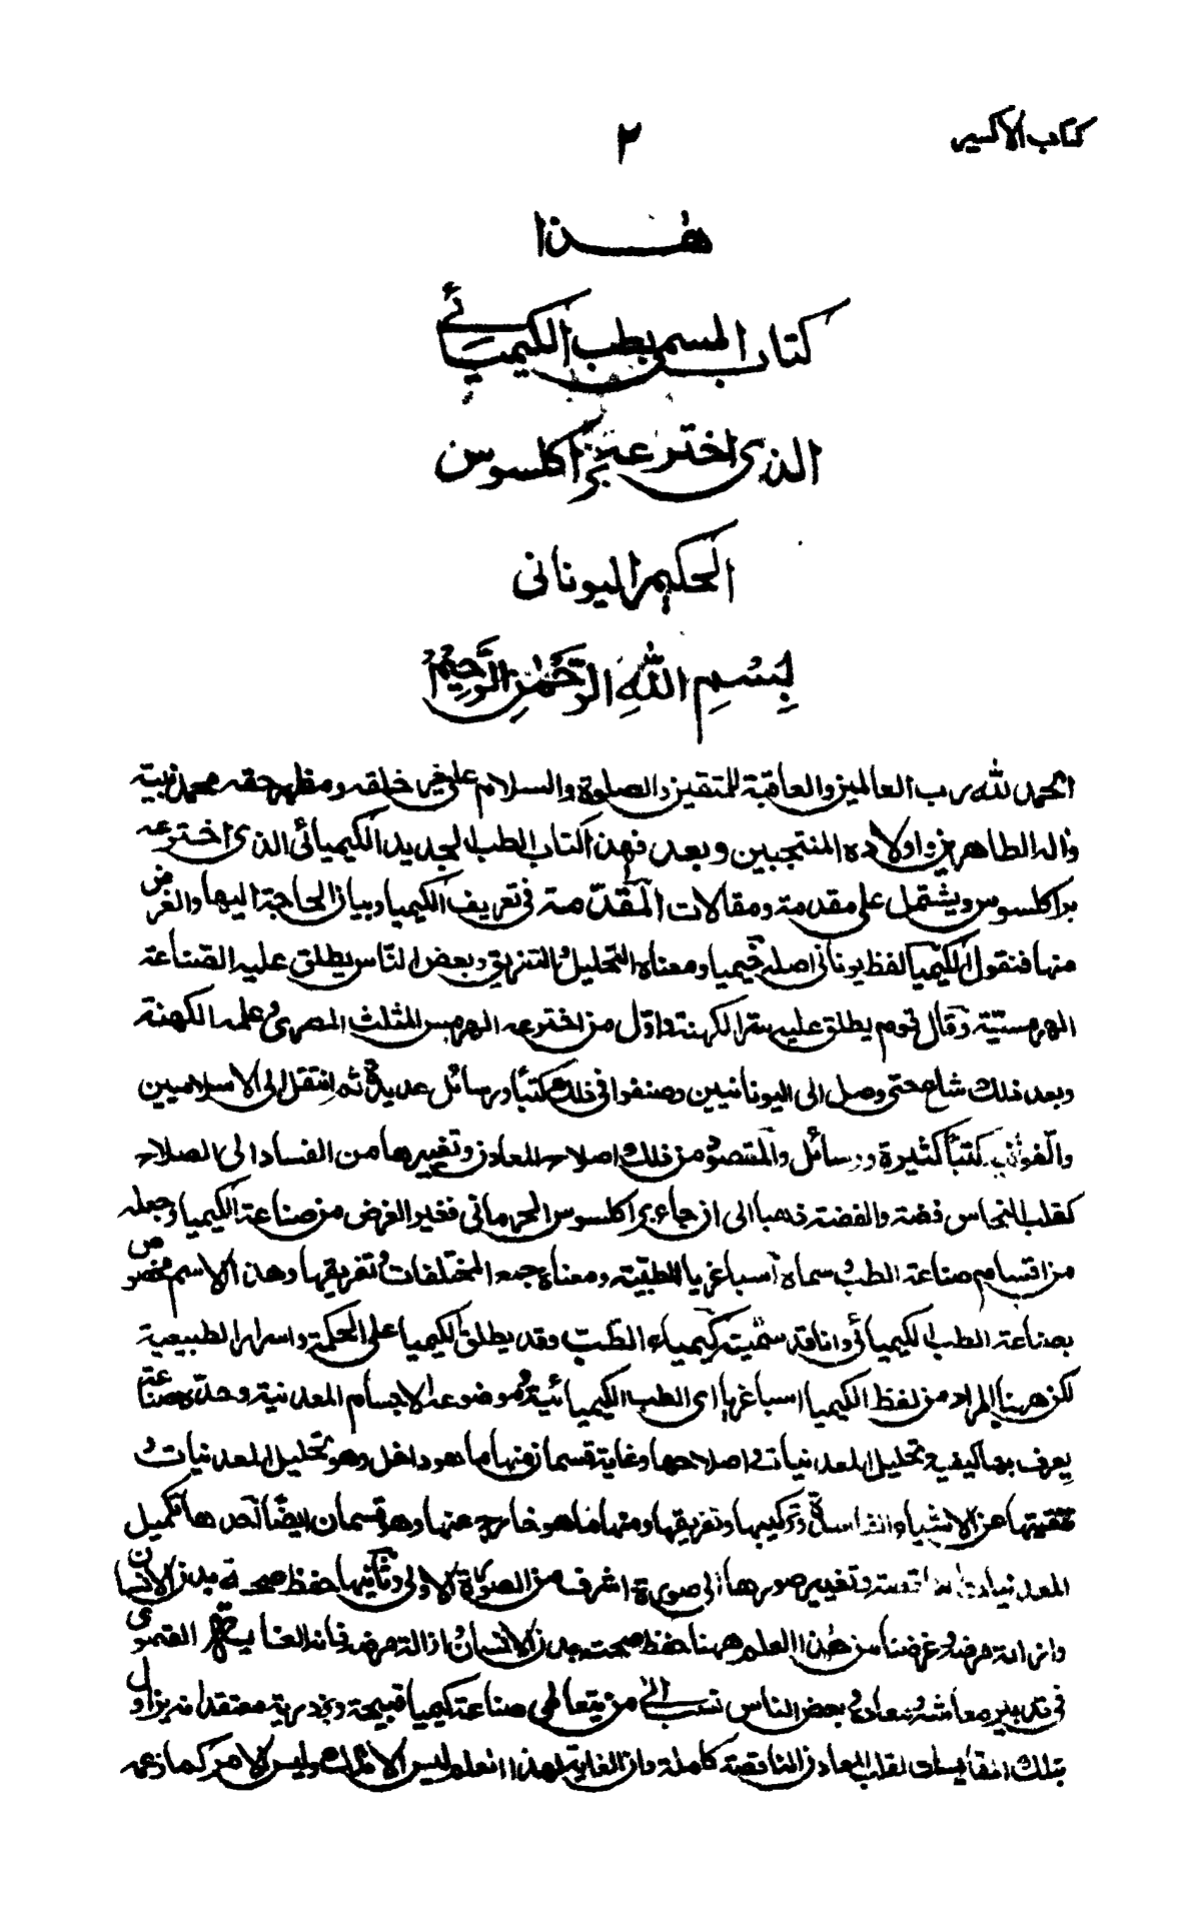 كتاب الاكسير
٢
هذا
كتاب المسمى بطب الكيميائي
الذى اخترعه براكلسوس
الحكيم اليونانى
بِسْمِ اللهِ الرَّحْمٰنِ الرَّحِيْمِ
الحمد لله رب العالمين والعاقبة للمتقين والصلوة والسلام على خير خلقه ومظهر حقه محمد نبيه
واله الطاهرين واولاده المنتجبين وبعد فهذا كتاب الطب الجديد الكيميائى الذى اخترعه
براكلسوس ويشتمل على مقدمة ومقالات المقدّمة فى تعريف الكيميا وبيان الحاجة اليها والغرض
منها فنقول الكيميا لفظ يونانى اصله خيميا ومعناه التحليل والتفريق وبعض النّاس يطلق عليه الصّناعة
الهرمستيّة وقال قوم يطلق عليه سر الكهنة واوّل من اخترعه الهرمس المثلث المصرى وعلمه الكهنة
وبعد ذلك شاع حتى وصل الى اليونانيين وصنفوا فى ذلك كتبا ورسائل عديدة ثم انتقل الى الاسلاميين
والّفوا فيه كتبا كثيرة ورسائل والمقصود من ذلك اصلاح المعادن وتغييرها من الفساد الى الصلاح
كقلب النحاس فضة والفضة ذهبا الى ان جاء براكلسوس الجرمانى فغير الغرض من صناعة الكيميا وجعله
من اقسام صناعة الطب وسماه اسباغريا الطبيّة ومعناه جمع المختلفات وتفريقها وهذا الاسم مخصوص
بصناعة الطب الكيميائى وانا قد سمّيته كيمياء الطب وقد يطلق الكيميا على الحكمة واسرار الطبيعية
لكن ههنا المراد من لفظ الكيميا اسباغريا اى الطب الكيميائية وموضوعه الاجسام المعدنية وحدّه صناعة
يعرف بها كيفية تحليل المعدنيات واصلاحها وغاية قسمان منها ما هو داخل وهو تحليل المعدنيات و
تنقيتها عن الاشياء الفاسدة وتركيبها وتفريقها ومنها ما هو خارج عنها وهو قسمان ايضًا احدها تكميل
المعدنيات الناقصة وتغيير صورها الى صورة اشرف من الصورة الاولى وثانيها حفظ صحة بدن الانسان
وازالة مرضه وغرضنا من هذا العلم ههنا حفظ صحت بدن الانسان وازالة مرضه فانه الغاية القصوى
فى تدبير معاشه ومعاده وبعض الناس نسب الى من يتعاطى صناعة كيميا قبيحة معتقدا انه يزاول
بتلك لقلب المعادن الناقصة كاملة وان الغاية لهذا العلم ليس الا ذلك وليس الامر كما زعمه